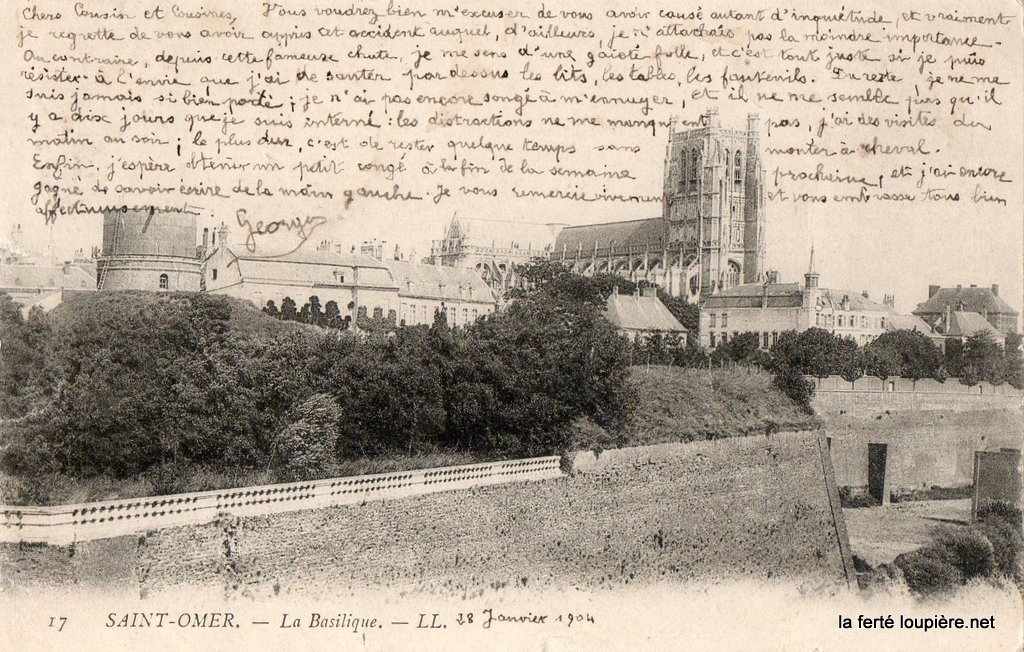 Chers Cousin et Cousines, Vous voudrez bien m'excuser de vous avoir causé autant d'inquiétude, et vraiment
je regrette de vous avoir appris cet accident auquel, d'ailleurs, je n'attachais pas la moindre importance -
Au contraire, depuis cette fameuse chute, je me sens d'une gaieté folle, et c'est tout juste si je puis
résister à l'envie que j'ai de sauter par dessus les lits, les tables, les fauteuils. Du reste je ne me
suis jamais si bien porté ; je n'ai pas encore songé à m'ennuyer, et il ne me semble pas qu'il
y a dix jours que je suis interné : les distractions ne me manquent pas, j'ai des visites du
matin au soir ; le plus dur, c'est de rester quelque temps sans monter à cheval.
Enfin, j'espère obtenir un petit congé à la fin de la semaine prochaine, et j'ai encore
gagné de savoir écrire de la main gauche. Je vous remercie vivement et vous embrasse tous bien
affectueusement Georges
17 SAINT-OMER. — La Basilique. — LL. 28 Janvier 1904
la ferté loupière.net